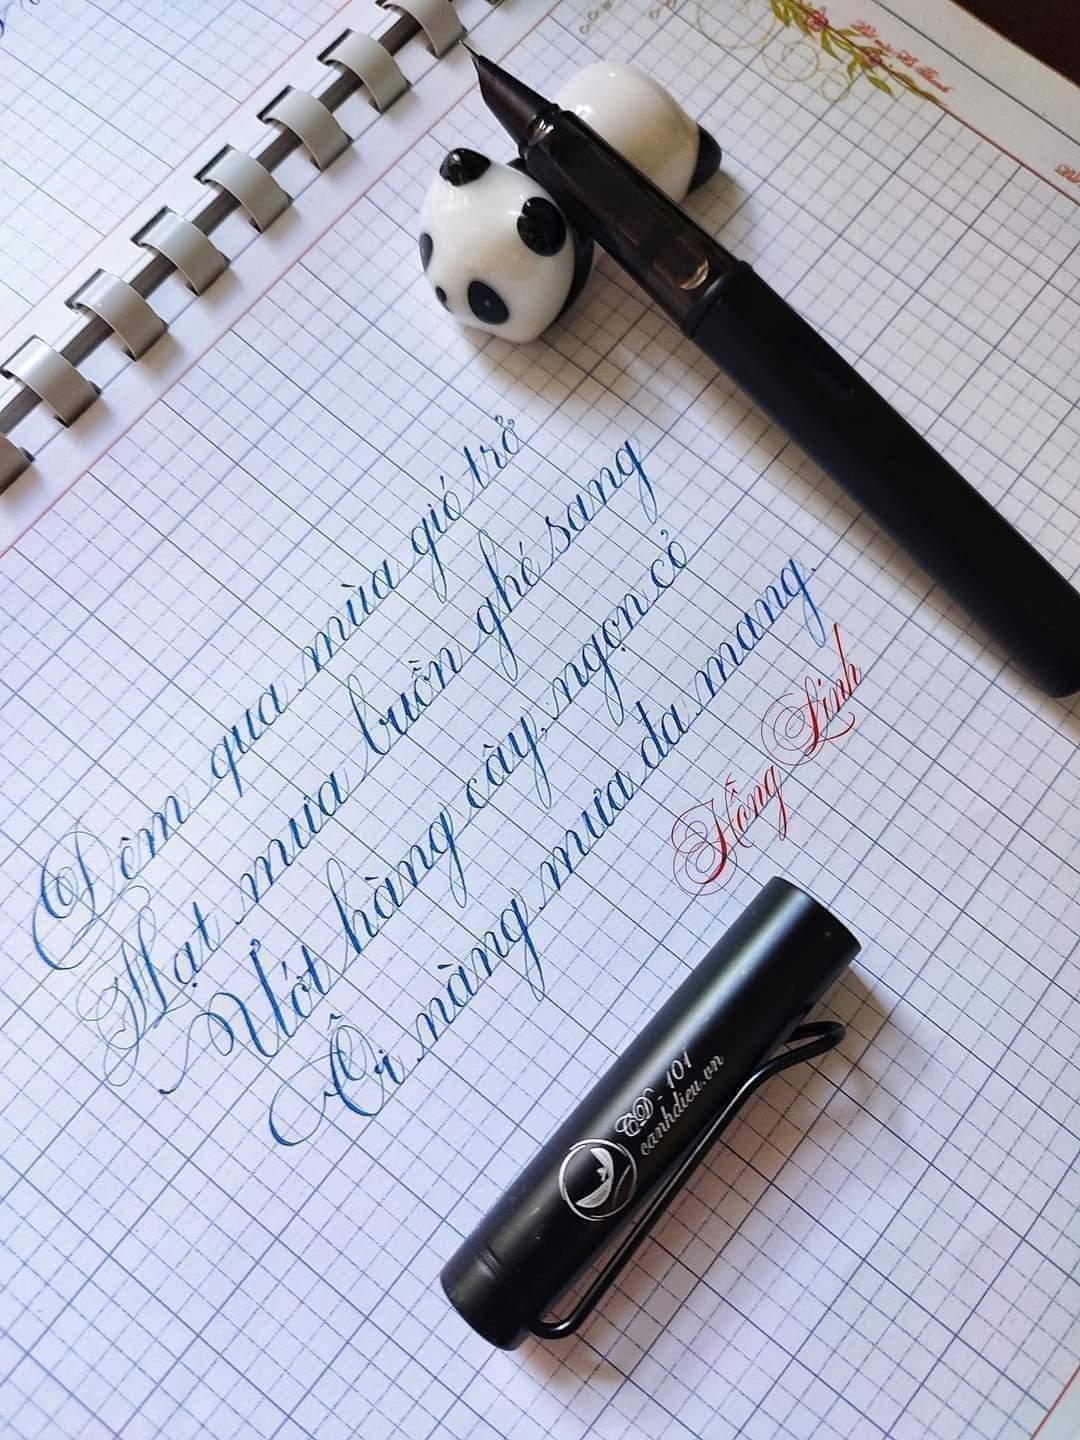 Đêm qua mùa gió trở
Hạt mưa buồn ghé sang
Ướt hàng cây, ngọn cỏ
Ôi nàng mưa đa mang.
Hồng Linh
CD - 101
canhdieu.vn